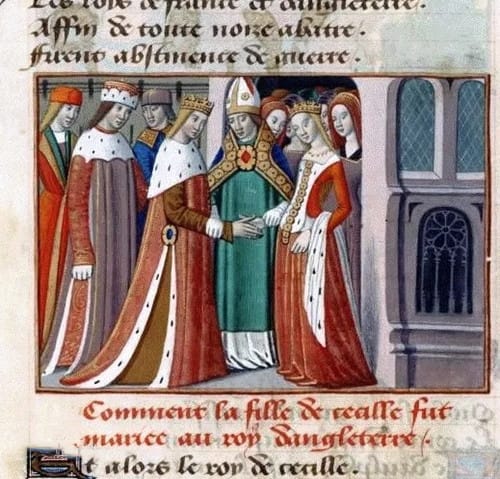 Les roys de france et dangleterre.
Affin de toute noize abatre.
Furent abstinence de guerre.
Comment la fille de cecille fut
mariee au roy dangleterre.
Et alors le roy de cecille.